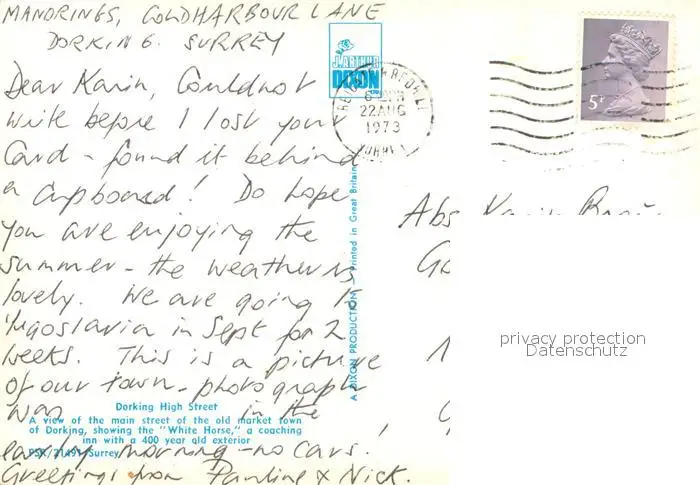 MANDRINGS, COLDHARBOUR LANE
DORKING. SURREY
Dear Karin, Couldnot
write before I lost your
Card - found it behind
a cupboard! Do hope
you are enjoying the
summer - the weather is
lovely. We are going to
Yugoslavia in Sept for 2
weeks. This is a picture
of our town - photograph
was in the
early morning - no cars.
Greetings from Pauline & Nick.
Dorking High Street
A view of the main street of the old market town
of Dorking, showing the "White Horse," a coaching
inn with a 400 year old exterior
Surrey
J. ARTHUR
DIXON
A DIXON PRODUCTION — Printed in Great Britain
22 AUG
1973
SURREY
5P
Abs Karin
privacy protection
Datenschutz